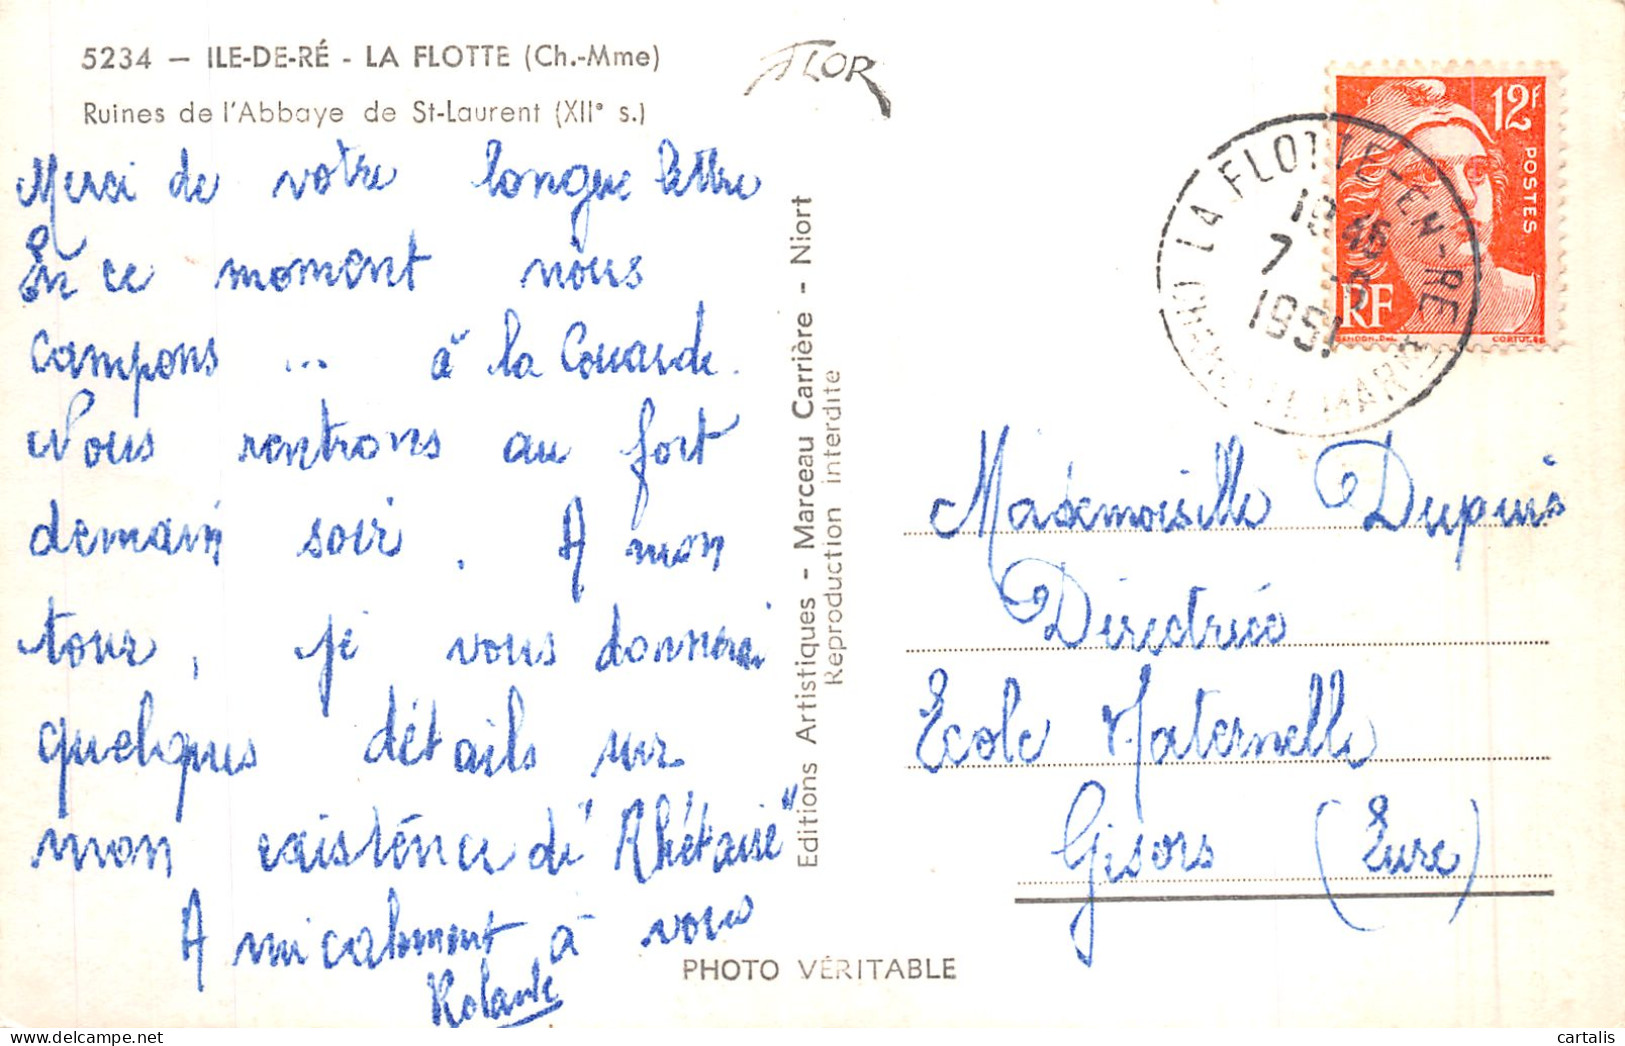 5234 – ILE-DE-RÉ - LA FLOTTE (Ch.-Mme)
Ruines de l'Abbaye de St-Laurent (XII° s.)
FLOR
Merci de votre longue lettre
En ce moment nous
campons ... à la Couarde.
Nous rentrons au fort
demain soir. A mon
tour, je vous donnerai
quelques détails sur
mon existence de "Rhétaise"
Amicalement à vous
Rolande
Editions Artistiques – Marceau Carrière – Niort
Reproduction interdite
PHOTO VÉRITABLE
12F
POSTES
RF
GANDON.DEL.
CORTOT.SC
LA FLOTTE-EN-RE
18 45
7
1951
CHARENTE MARME
Mademoiselle Dupuis
Directrice
Ecole Maternelle
Gisors (Eure)
cartalis